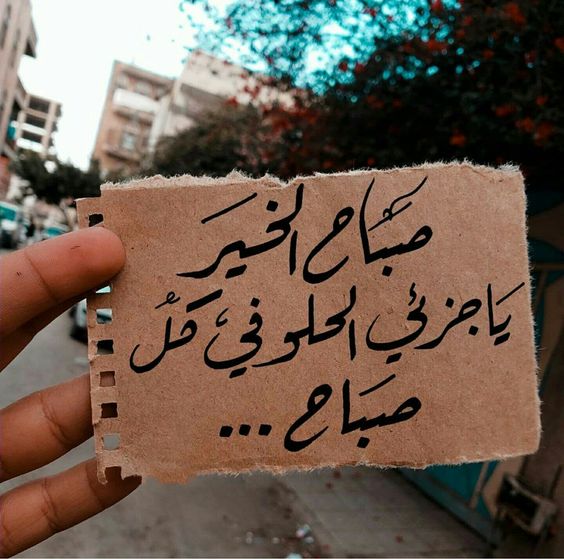 صَبَّاح الخَيَر
يَا جزئي الحلو فيَّ كلُ
صبَاح ...